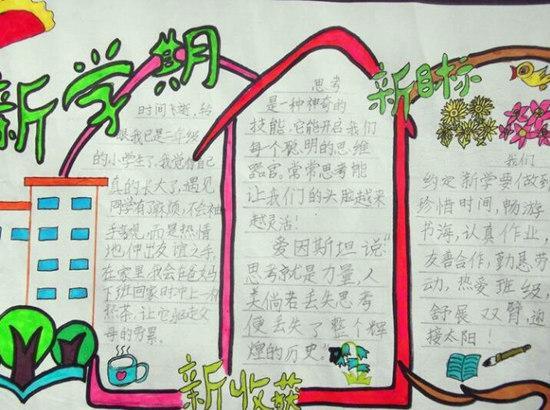 新学期
新目标
时间飞逝，转
眼我已是一年级
的小学生了，我觉得自己
真的长大了，遇见
同学有了麻烦，不会袖
手旁观，而是热情
地伸出友谊之手，
在家里，我会在爸妈
下班回家时冲上一杯
热茶，让它驱走父
母的劳累。
思考
是一种神奇的
技能，它能开启我们
每个聪明的思维
器官，常常思考能
让我们的头脑越来
越灵活！
爱因斯坦说“
思考就是力量，人
类倘若丢失思考
便丢失了整个辉
煌的历史”
我们
约定新学要做到
珍惜时间，畅游
书海，认真作业，
友善合作，勤恳劳
动，热爱班级，
舒展双臂，迎
接太阳！
新收获